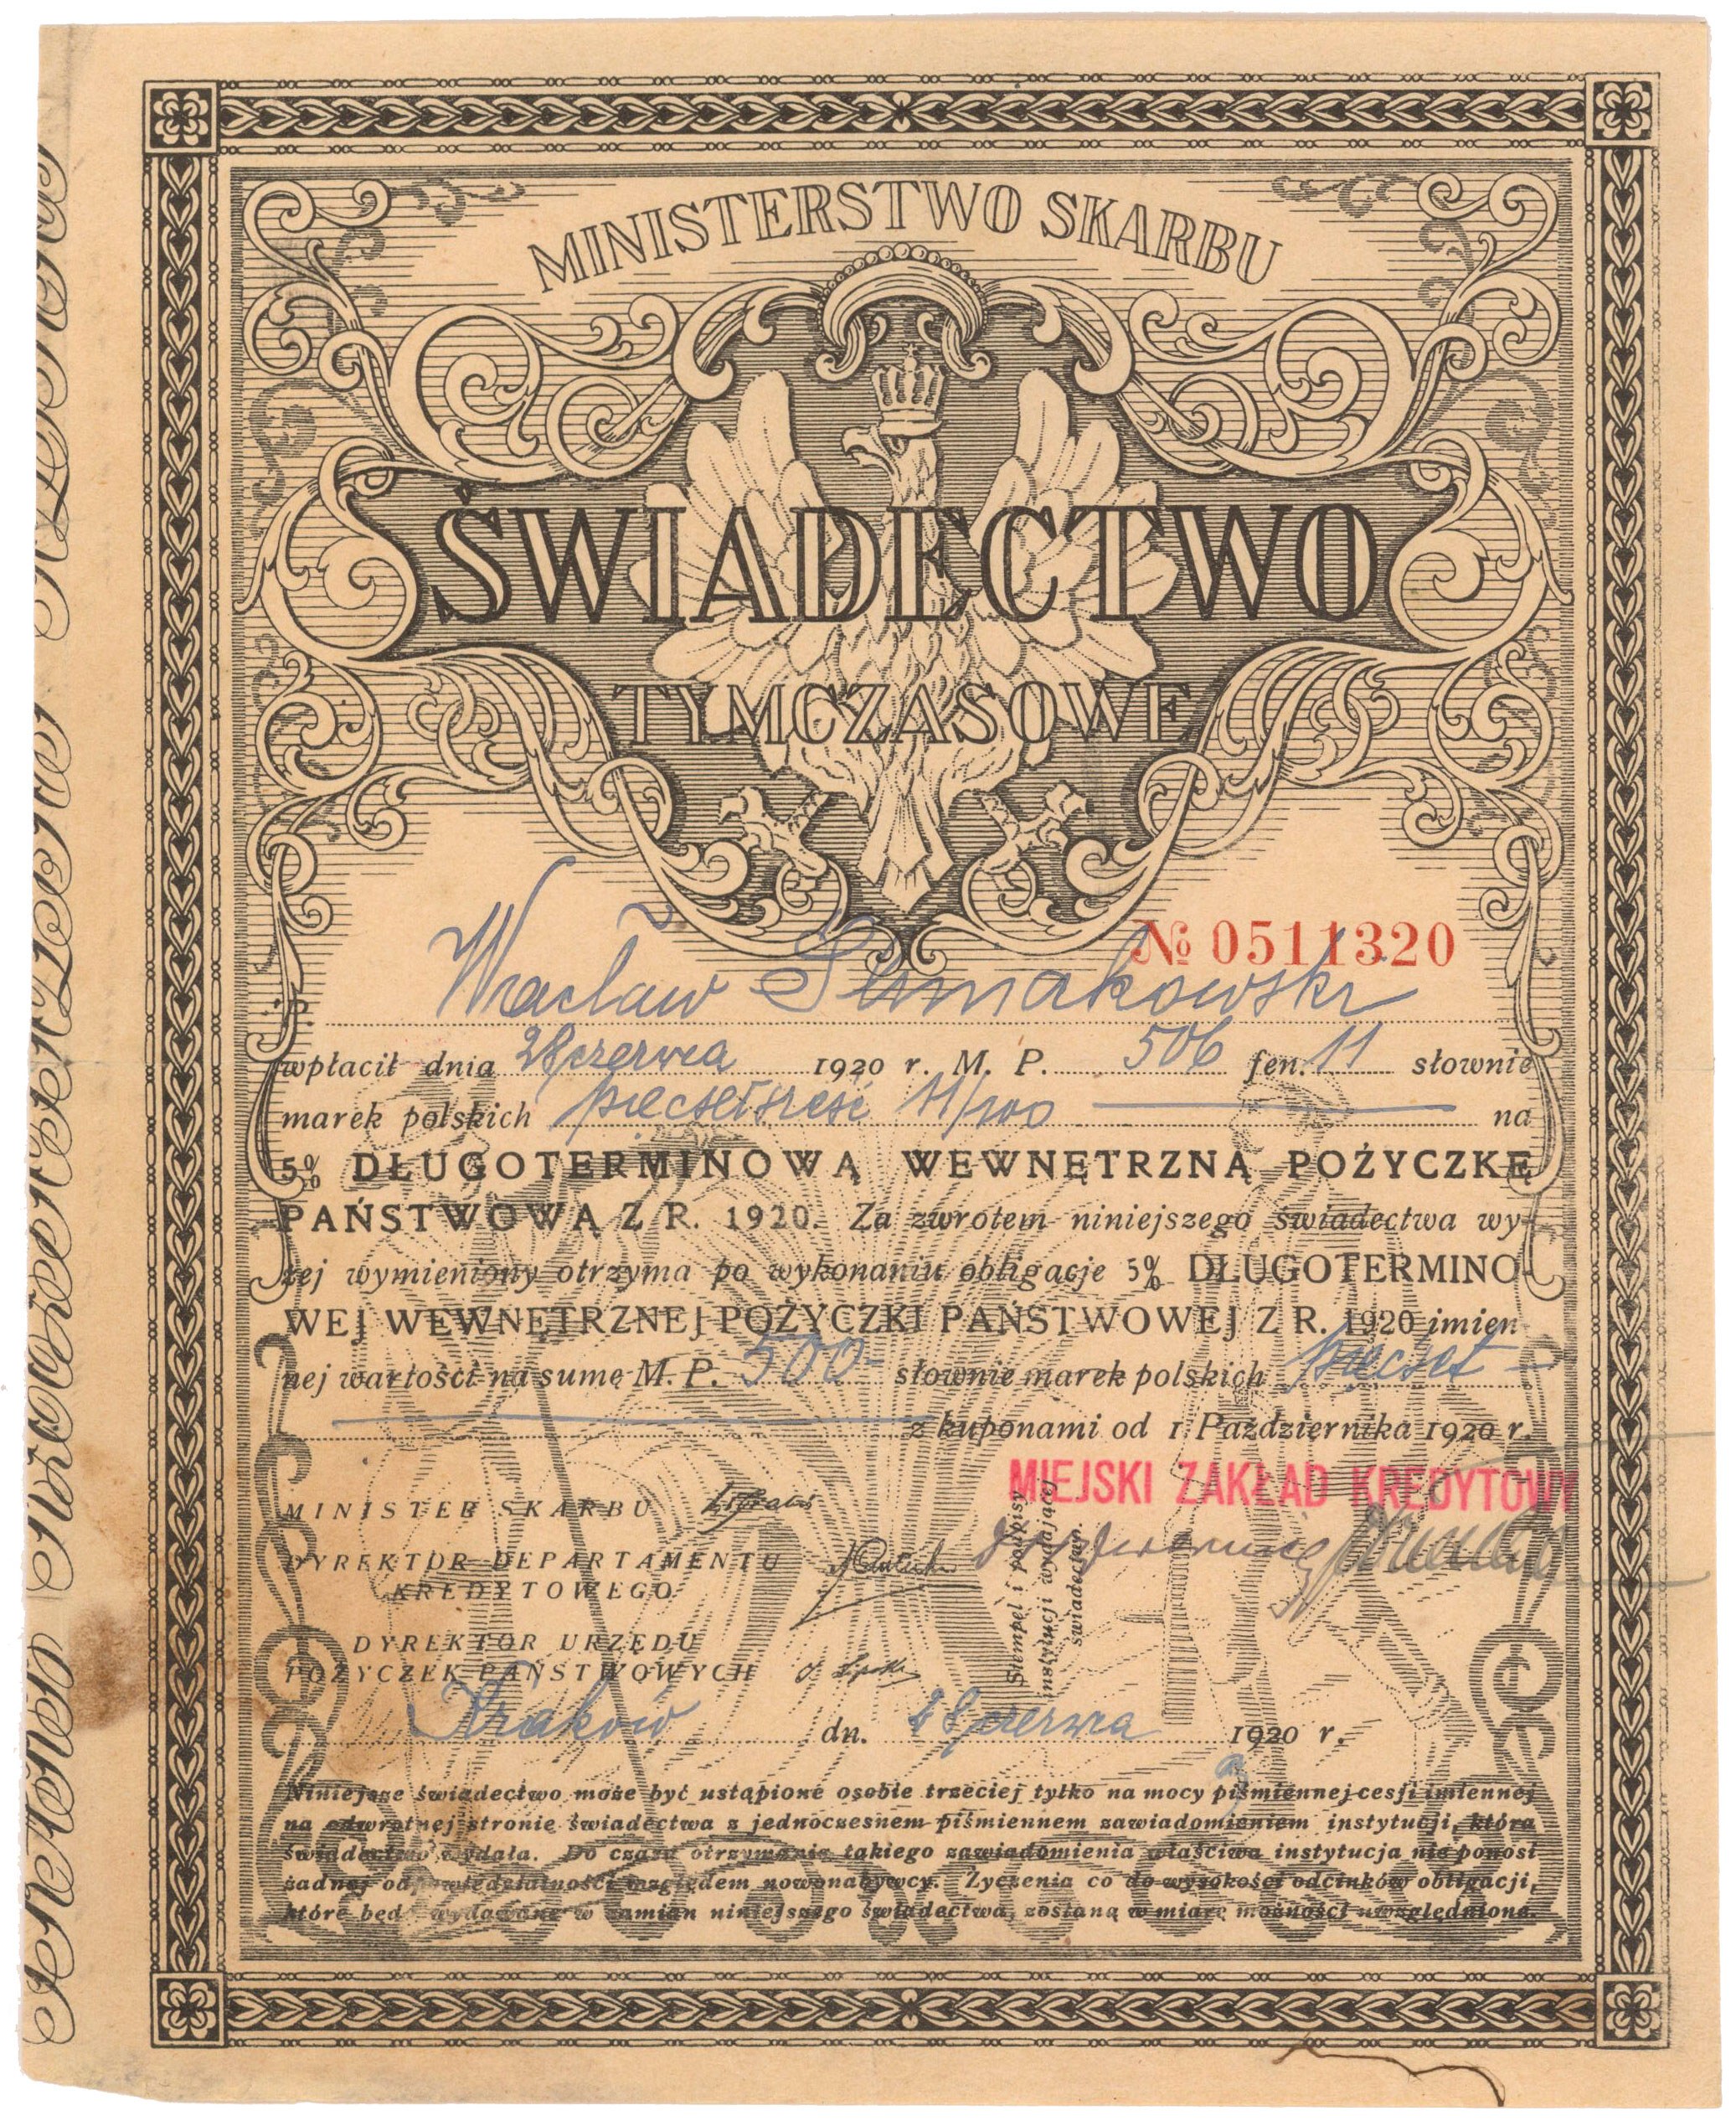 MINISTERSTWO SKARBU
ŚWIADECTWO
TYMCZASOWE
№ 0511320
P. Wacław
wpłacił dnia 28 czerwca 1920 r. M. P. 506 fen. 11 słownie
marek polskich pięćsetsześć 11/100 na
5% DŁUGOTERMINOWĄ WEWNĘTRZNĄ POŻYCZKĘ
PAŃSTWOWĄ Z R. 1920. Za zwrotem niniejszego świadectwa wy-
żej wymieniony otrzyma po wykonaniu obligacje 5% DŁUGOTERMINO-
WEJ WEWNĘTRZNEJ POŻYCZKI PAŃSTWOWEJ Z R. 1920 imien-
nej wartości na sumę M. P. 500- słownie marek polskich pięćset
z kuponami od 1 Października 1920 r.
MIEJSKI ZAKŁAD KREDYTOWY
MINISTER SKARBU
DYREKTOR DEPARTAMENTU
KREDYTOWEGO
DYREKTOR URZĘDU
POŻYCZEK PAŃSTWOWYCH
Stempel i podpisy
instytucji wydającej
świadectwo.
Kraków dn. 28 czerwca 1920 r.
Niniejsze świadectwo może być ustąpione osobie trzeciej tylko na mocy piśmiennej cesji imiennej
na odwrotnej stronie świadectwa z jednoczesnem piśmiennem zawiadomieniem instytucji, która
świadectwo wydała. Do czasu otrzymania takiego zawiadomienia właściwa instytucja nie ponosi
żadnej odpowiedzialności względem nowonabywcy. Życzenia co do wysokości odcinków obligacji,
które będą wydawane w zamian niniejszego świadectwa, zostaną w miarę możności uwzględnione.